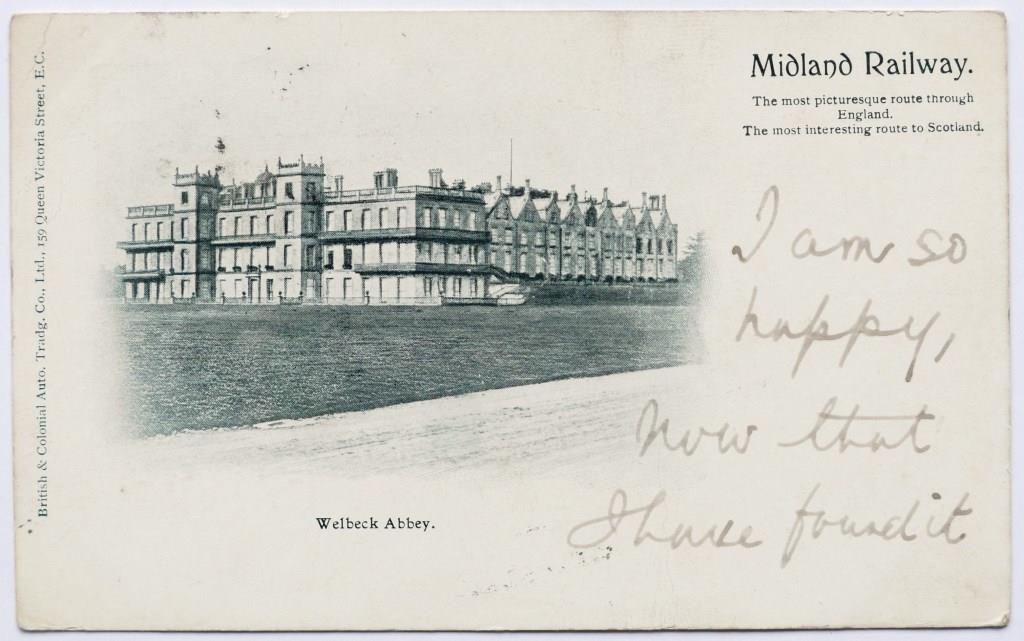 British & Colonial Auto. Tradg. Co., Ltd., 159 Queen Victoria Street, E.C.
Midland Railway.
The most picturesque route through
England.
The most interesting route to Scotland.
I am so
happy,
now that
I have found it
Welbeck Abbey.